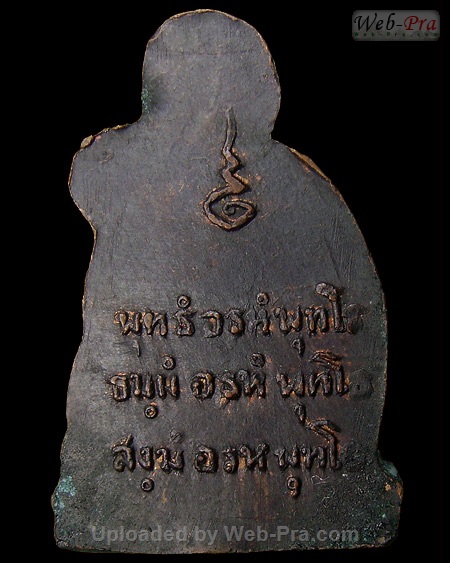 Web-Pra
Web-Pra.com
พุทธํ อรหํ พุทโธ
ธมฺมํ อรหํ พุทโธ
สงฺฆํ อรห พุทโธ
Uploaded by Web-Pra.com